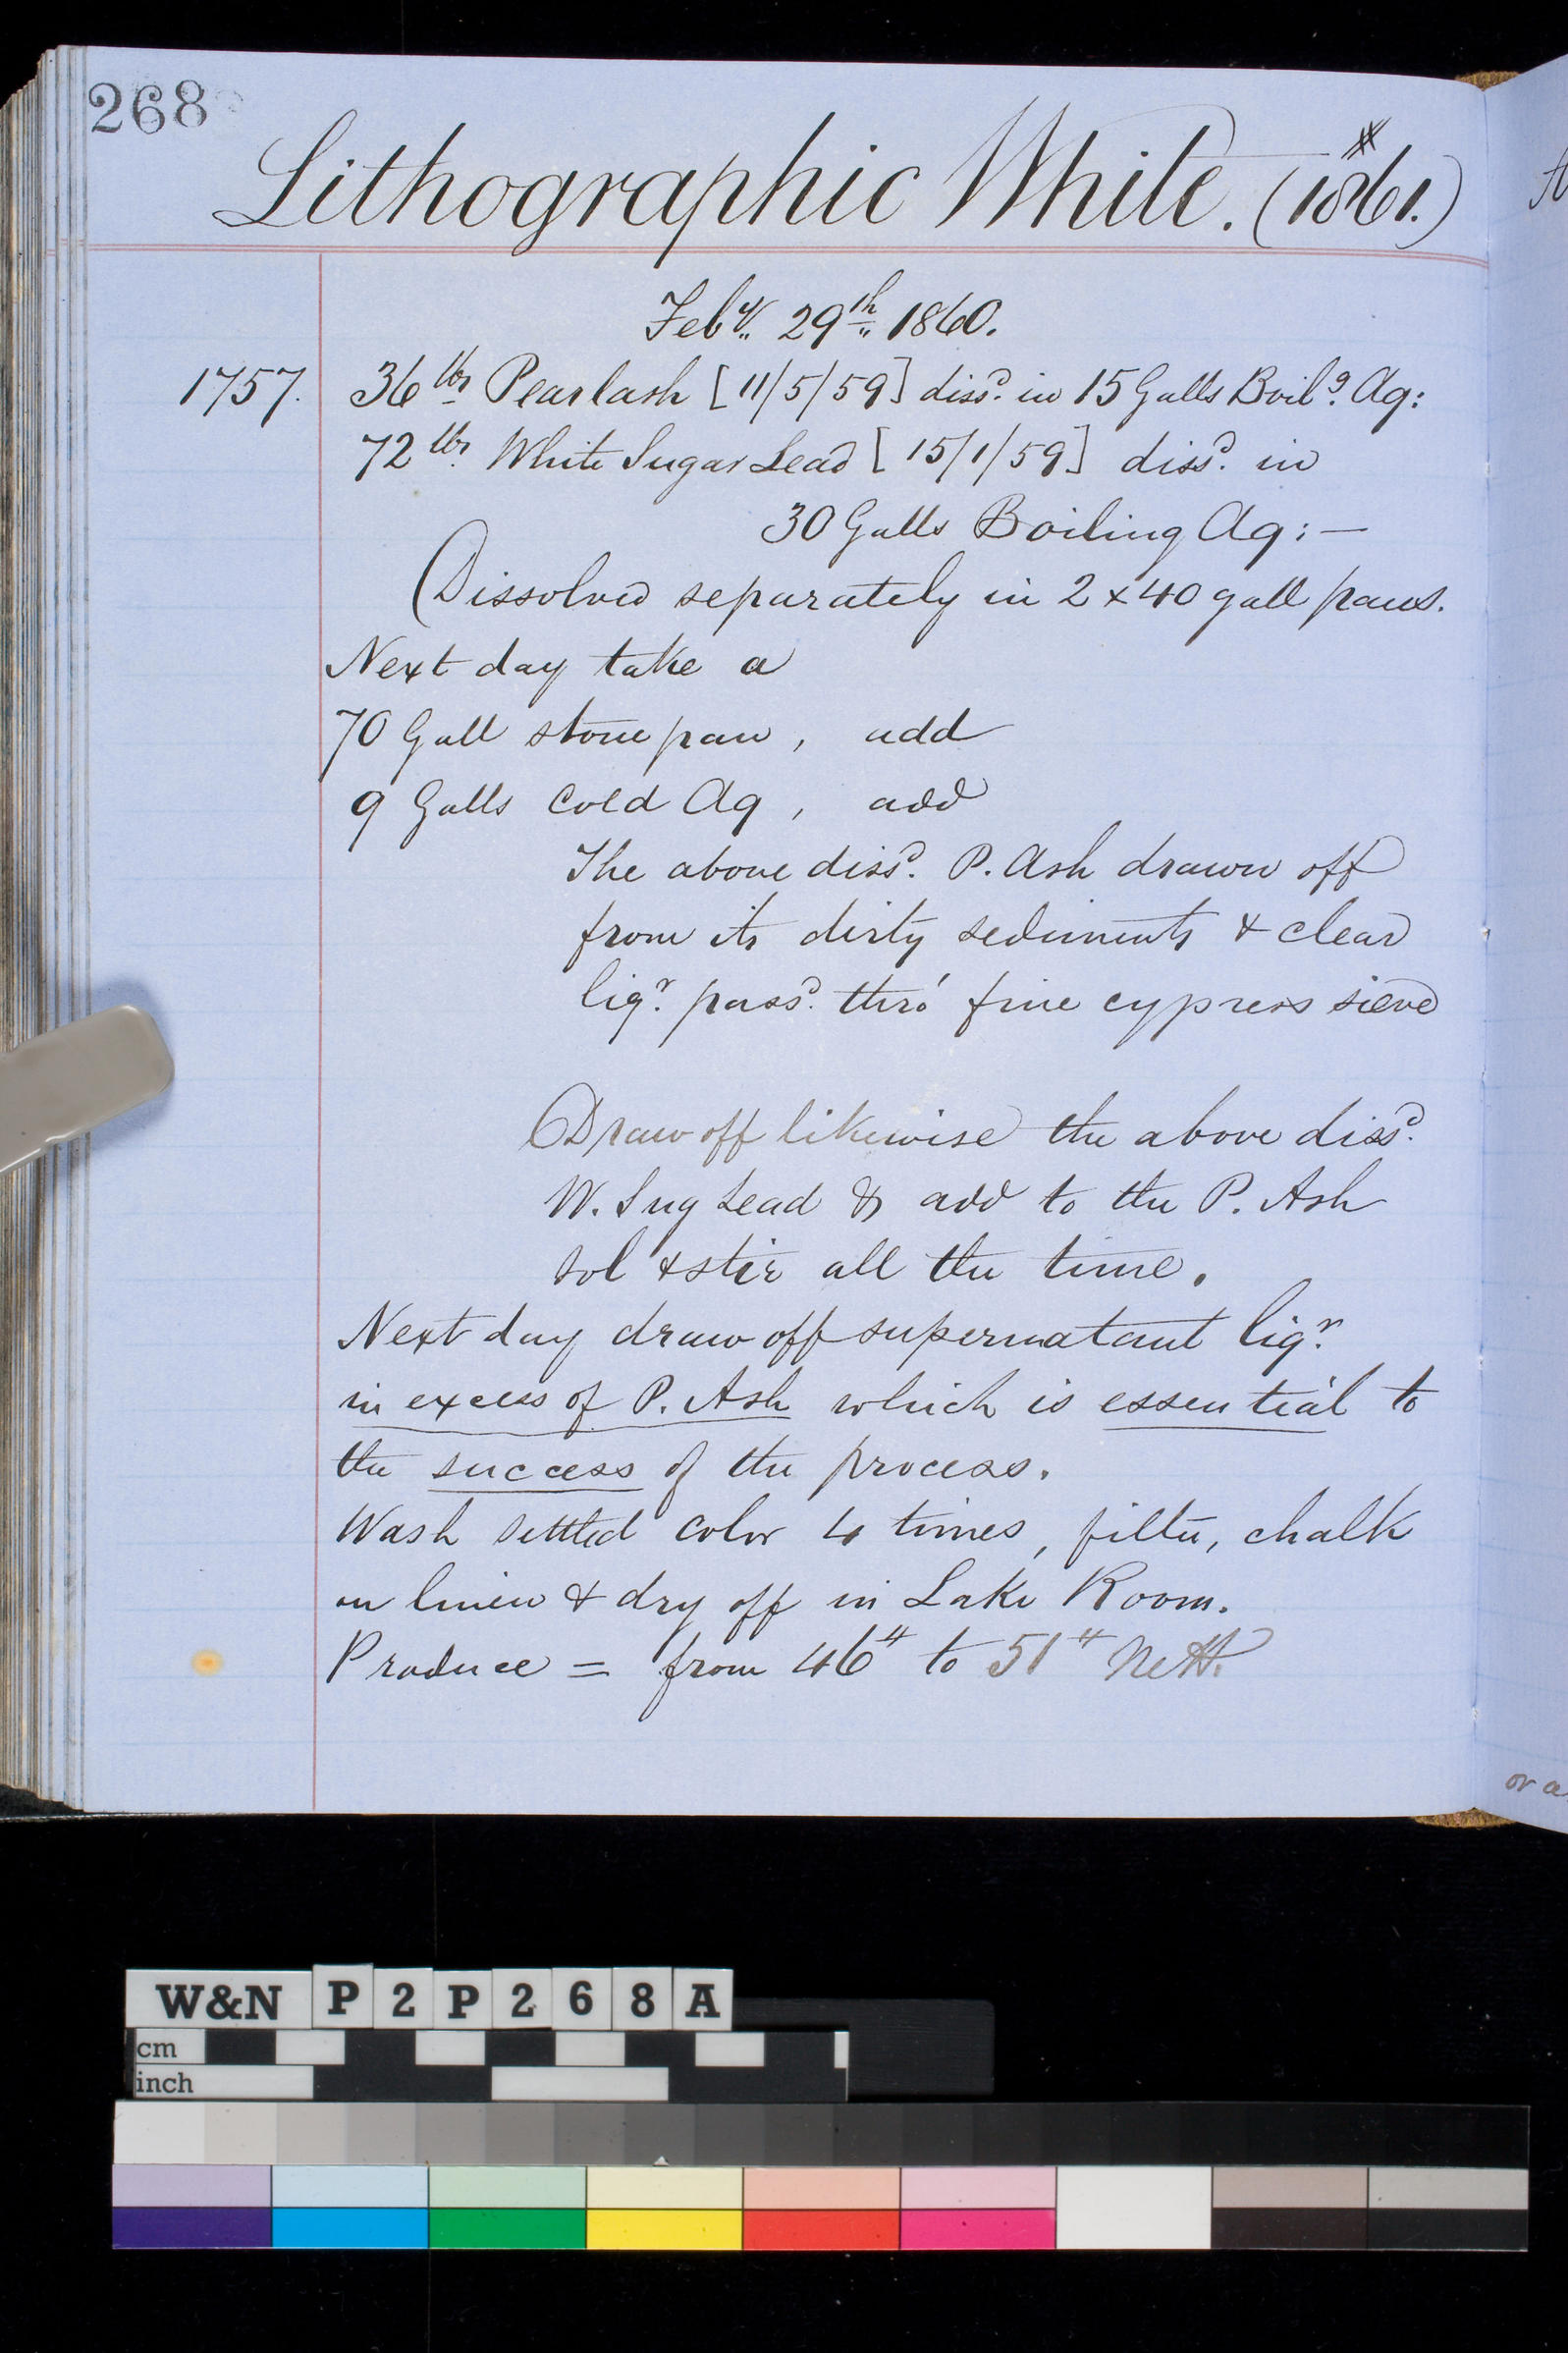 268
Lithographic White. (1861.)
Feby. 29th 1860.
1757. 36 lbs Pearlash [11/5/59] dissd. in 15 Galls Boilg. Aq:
72 lbs. White Sugar Lead [15/1/59] dissd. in
30 Galls Boiling Aq: —
(Dissolved separately in 2 x 40 gall pans.
Next day take a
70 Gall stone pan, add
9 Galls Cold Aq, add
The above dissd. P. Ash drawn off
from its dirty sediments & clear
liqr. passd. thro' fine cypress sieve
Draw off likewise the above dissd.
W. Sug Lead & add to the P. Ash
sol & stir all the time.
Next day draw off supernatant liqr.
in excess of P. Ash which is essential to
the success of the process.
Wash settled color 4 times, filter, chalk
on linen & dry off in Lake Room.
Produce = from 46# to 51# Nett.
or a
W&N P2P268A
cm
inch